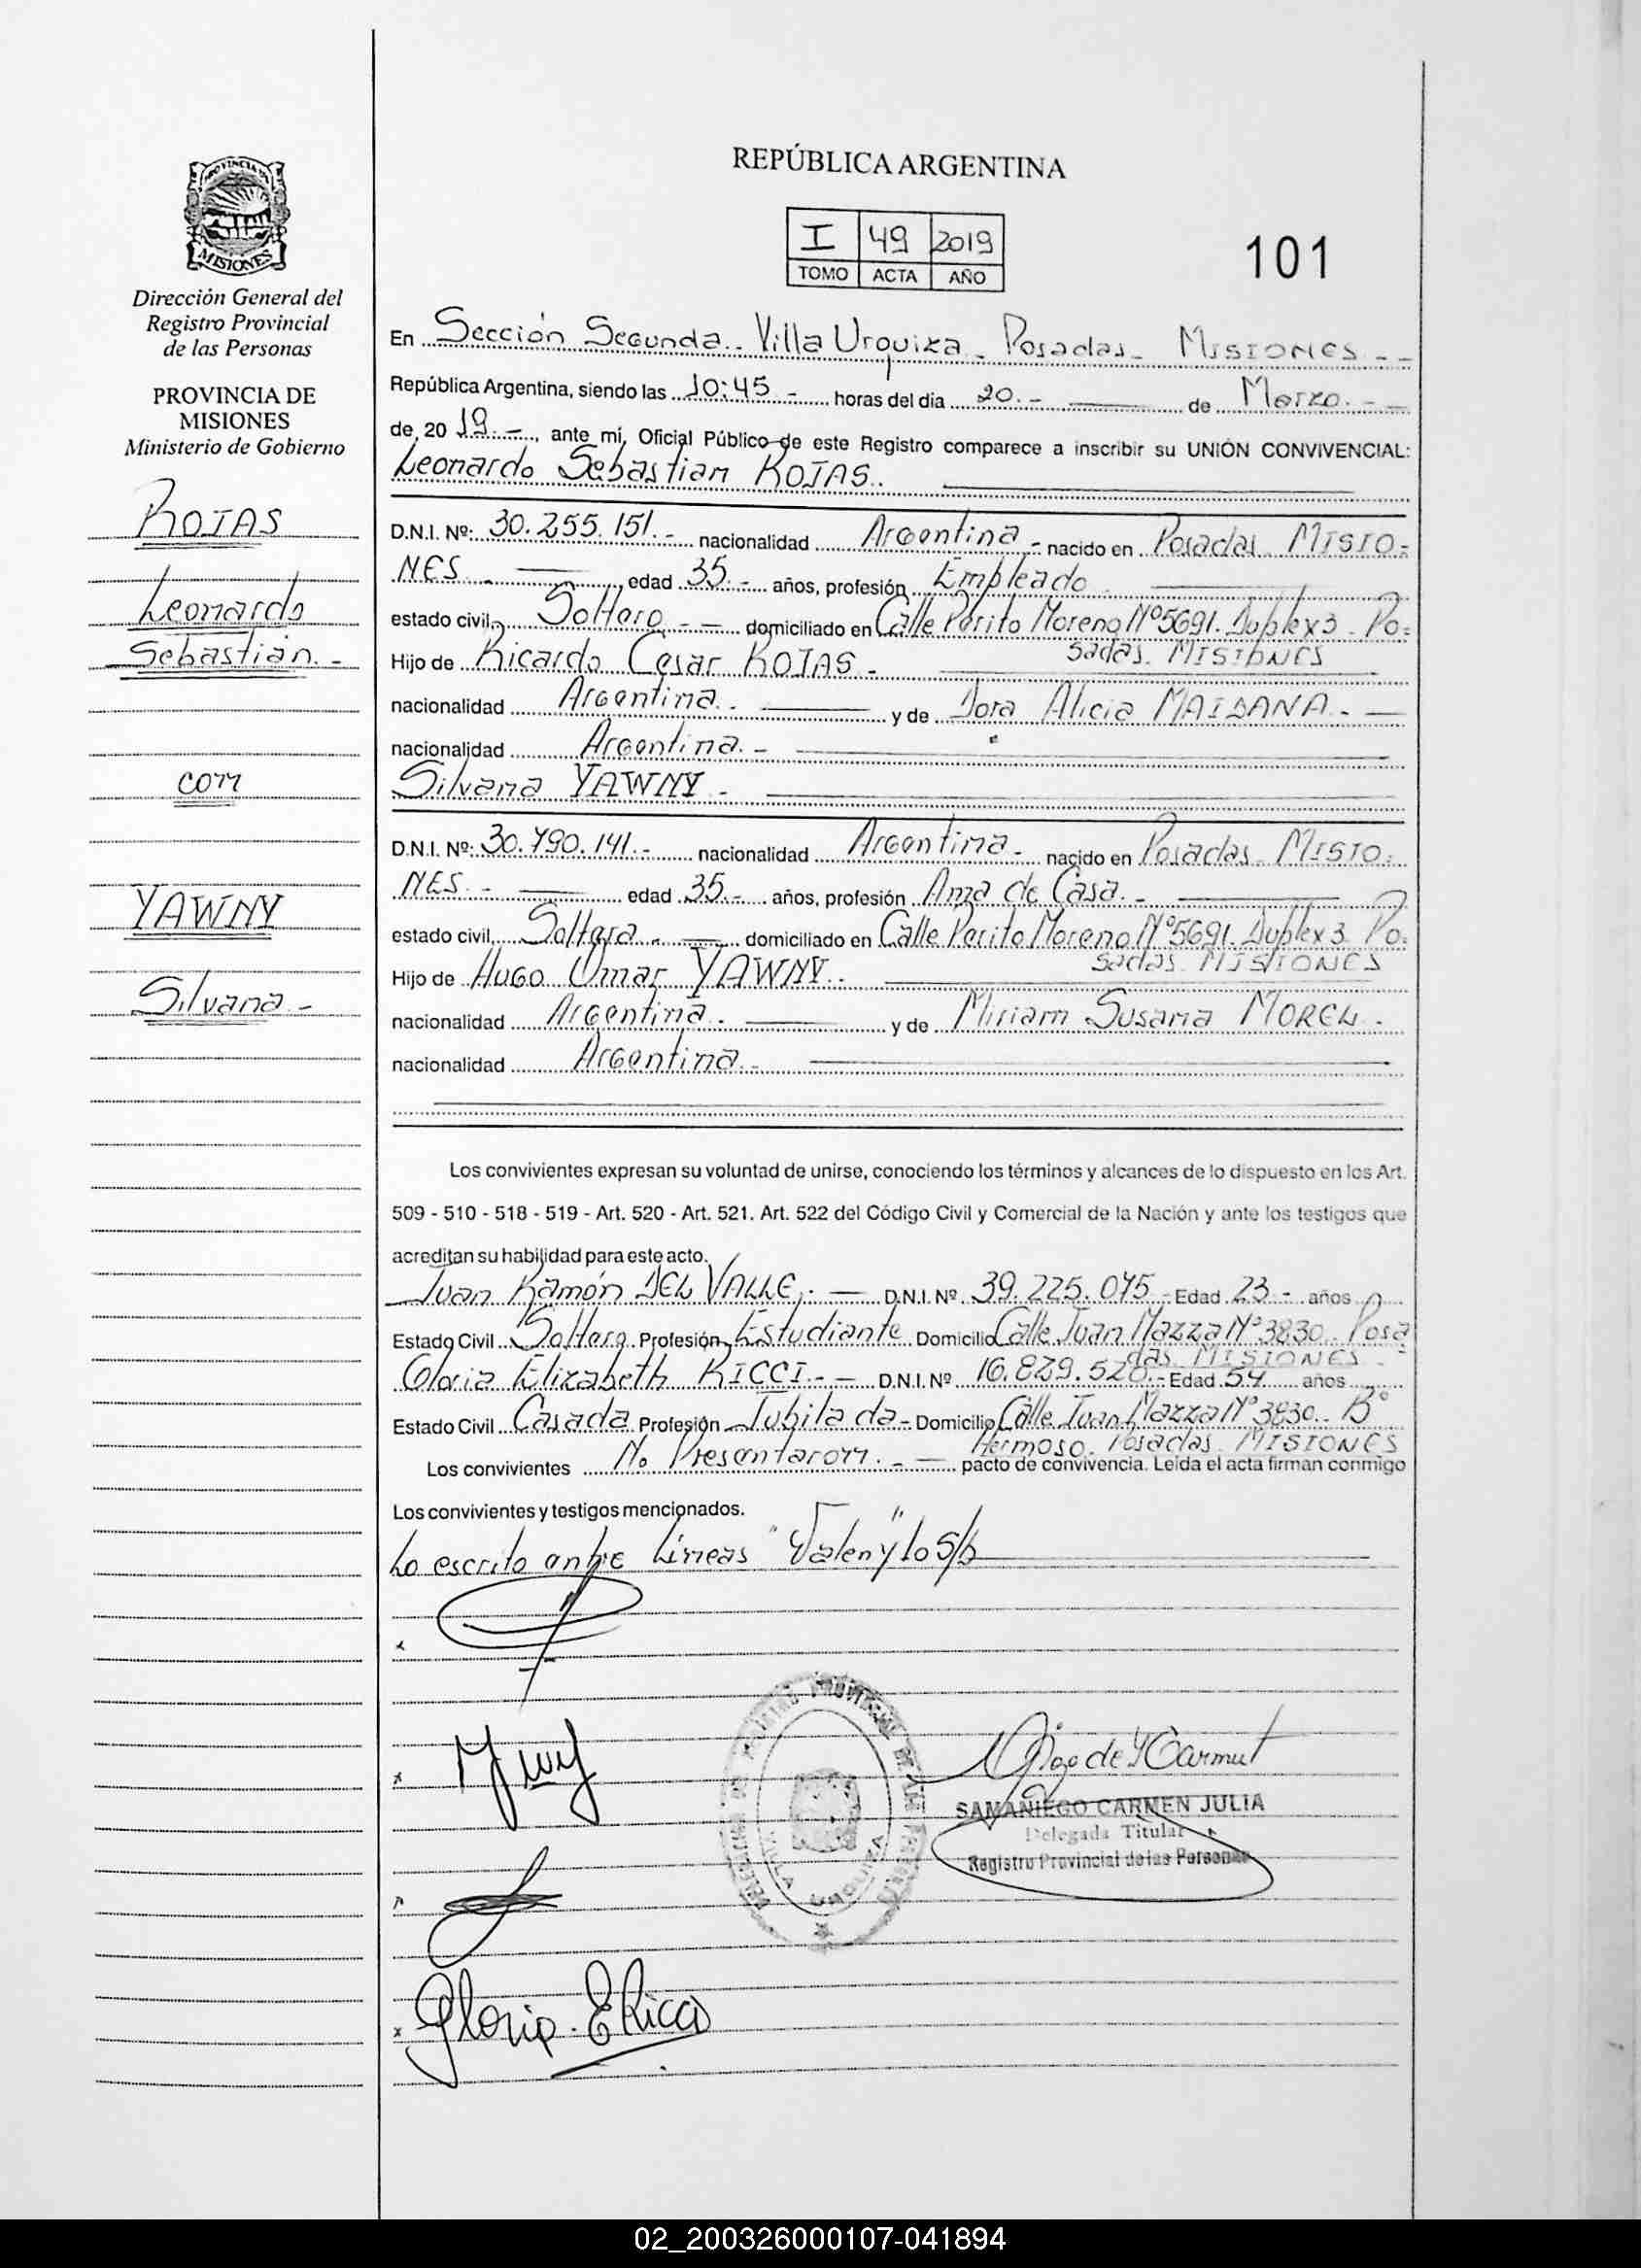 REPÚBLICA ARGENTINA
I 49 2019
TOMO ACTA AÑO
101
PROVINCIA DE
MISIONES
Dirección General del
Registro Provincial
de las Personas
PROVINCIA DE
MISIONES
Ministerio de Gobierno
ROJAS
Leonardo
Sebastián.-
con
YAWNY
Silvana.-
En Sección Segunda.. Villa Urquiza - Posadas - MISIONES - -
República Argentina, siendo las 10:45 - horas del día 20.- de Marzo.- -
de 20 19.-, ante mí, Oficial Público de este Registro comparece a inscribir su UNIÓN CONVIVENCIAL:
Leonardo Sebastian ROJAS..
D.N.I. Nº: 30.255.151.- nacionalidad Argentina - nacido en Posadas MISIO-
NES - edad 35.- años, profesión Empleado
estado civil Soltero - - domiciliado en Calle Perito Moreno Nº5691. Duplex 3 - Po-
sadas. MISIONES
Hijo de Ricardo Cesar ROJAS -
nacionalidad Argentina.- y de Dora Alicia MAIDANA.-
nacionalidad Argentina.-
Silvana YAWNY -
D.N.I. Nº: 30.790.141.- nacionalidad Argentina - nacido en Posadas - MISIO-
NES.- edad 35.- años, profesión Ama de Casa.-
estado civil Soltera.- domiciliado en Calle Perito Moreno Nº5691. Duplex 3. Po-
sadas. MISIONES
Hijo de Hugo Omar YAWNY..
nacionalidad Argentina.- y de Miriam Susana MOREL.-
nacionalidad Argentina.-
Los convivientes expresan su voluntad de unirse, conociendo los términos y alcances de lo dispuesto en los Art.
509 - 510 - 518 - 519 - Art. 520 - Art. 521. Art. 522 del Código Civil y Comercial de la Nación y ante los testigos que
acreditan su habilidad para este acto.
Juan Ramón DEL VALLE.- D.N.I. Nº 39.225.075 - Edad 23 - años
Estado Civil Soltero Profesión Estudiante Domicilio Calle Juan Mazza Nº3830.. Posa
das MISIONES -
Gloria Elizabeth RICCI.- - D.N.I. Nº 16.829.528.- Edad 54 años
Estado Civil Casada Profesión Jubilada - Domicilio Calle Juan Mazza Nº3830.. Bº
Hermoso. Posadas. MISIONES
Los convivientes No Presentaron.- pacto de convivencia. Leída el acta firman conmigo
Los convivientes y testigos mencionados.
Lo escrito entre Lineas "Valen" y lo S/b
x
x
Gloria.E Ricci
VILLA URQUIZA
SAMANIEGO CARMEN JULIA
Delegada Titular
Registro Provincial de las Personas
02_200326000107-041894